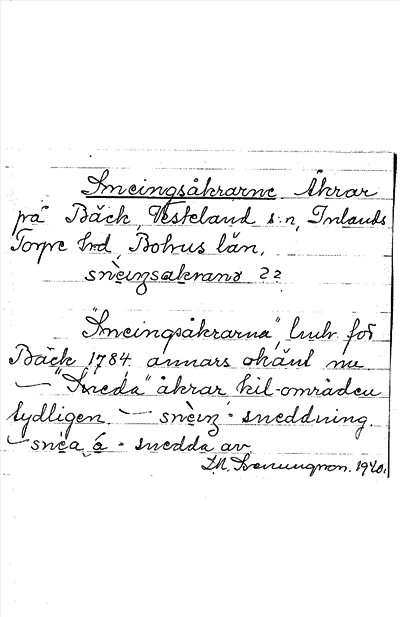 Sneingsåkrarne Åkrar
på Bäck, Vesteland s:n, Inlands
Torpe hrd, Bohus län.
snèiŋsakrana ??
"Sneingsåkrarna", enl. för
Bäck, 1784, annars okänt nu
— "Sneda" åkrar, kil-områden
tydligen. — snèiŋ = sneddning.
— snèa å = snedda av
1940.